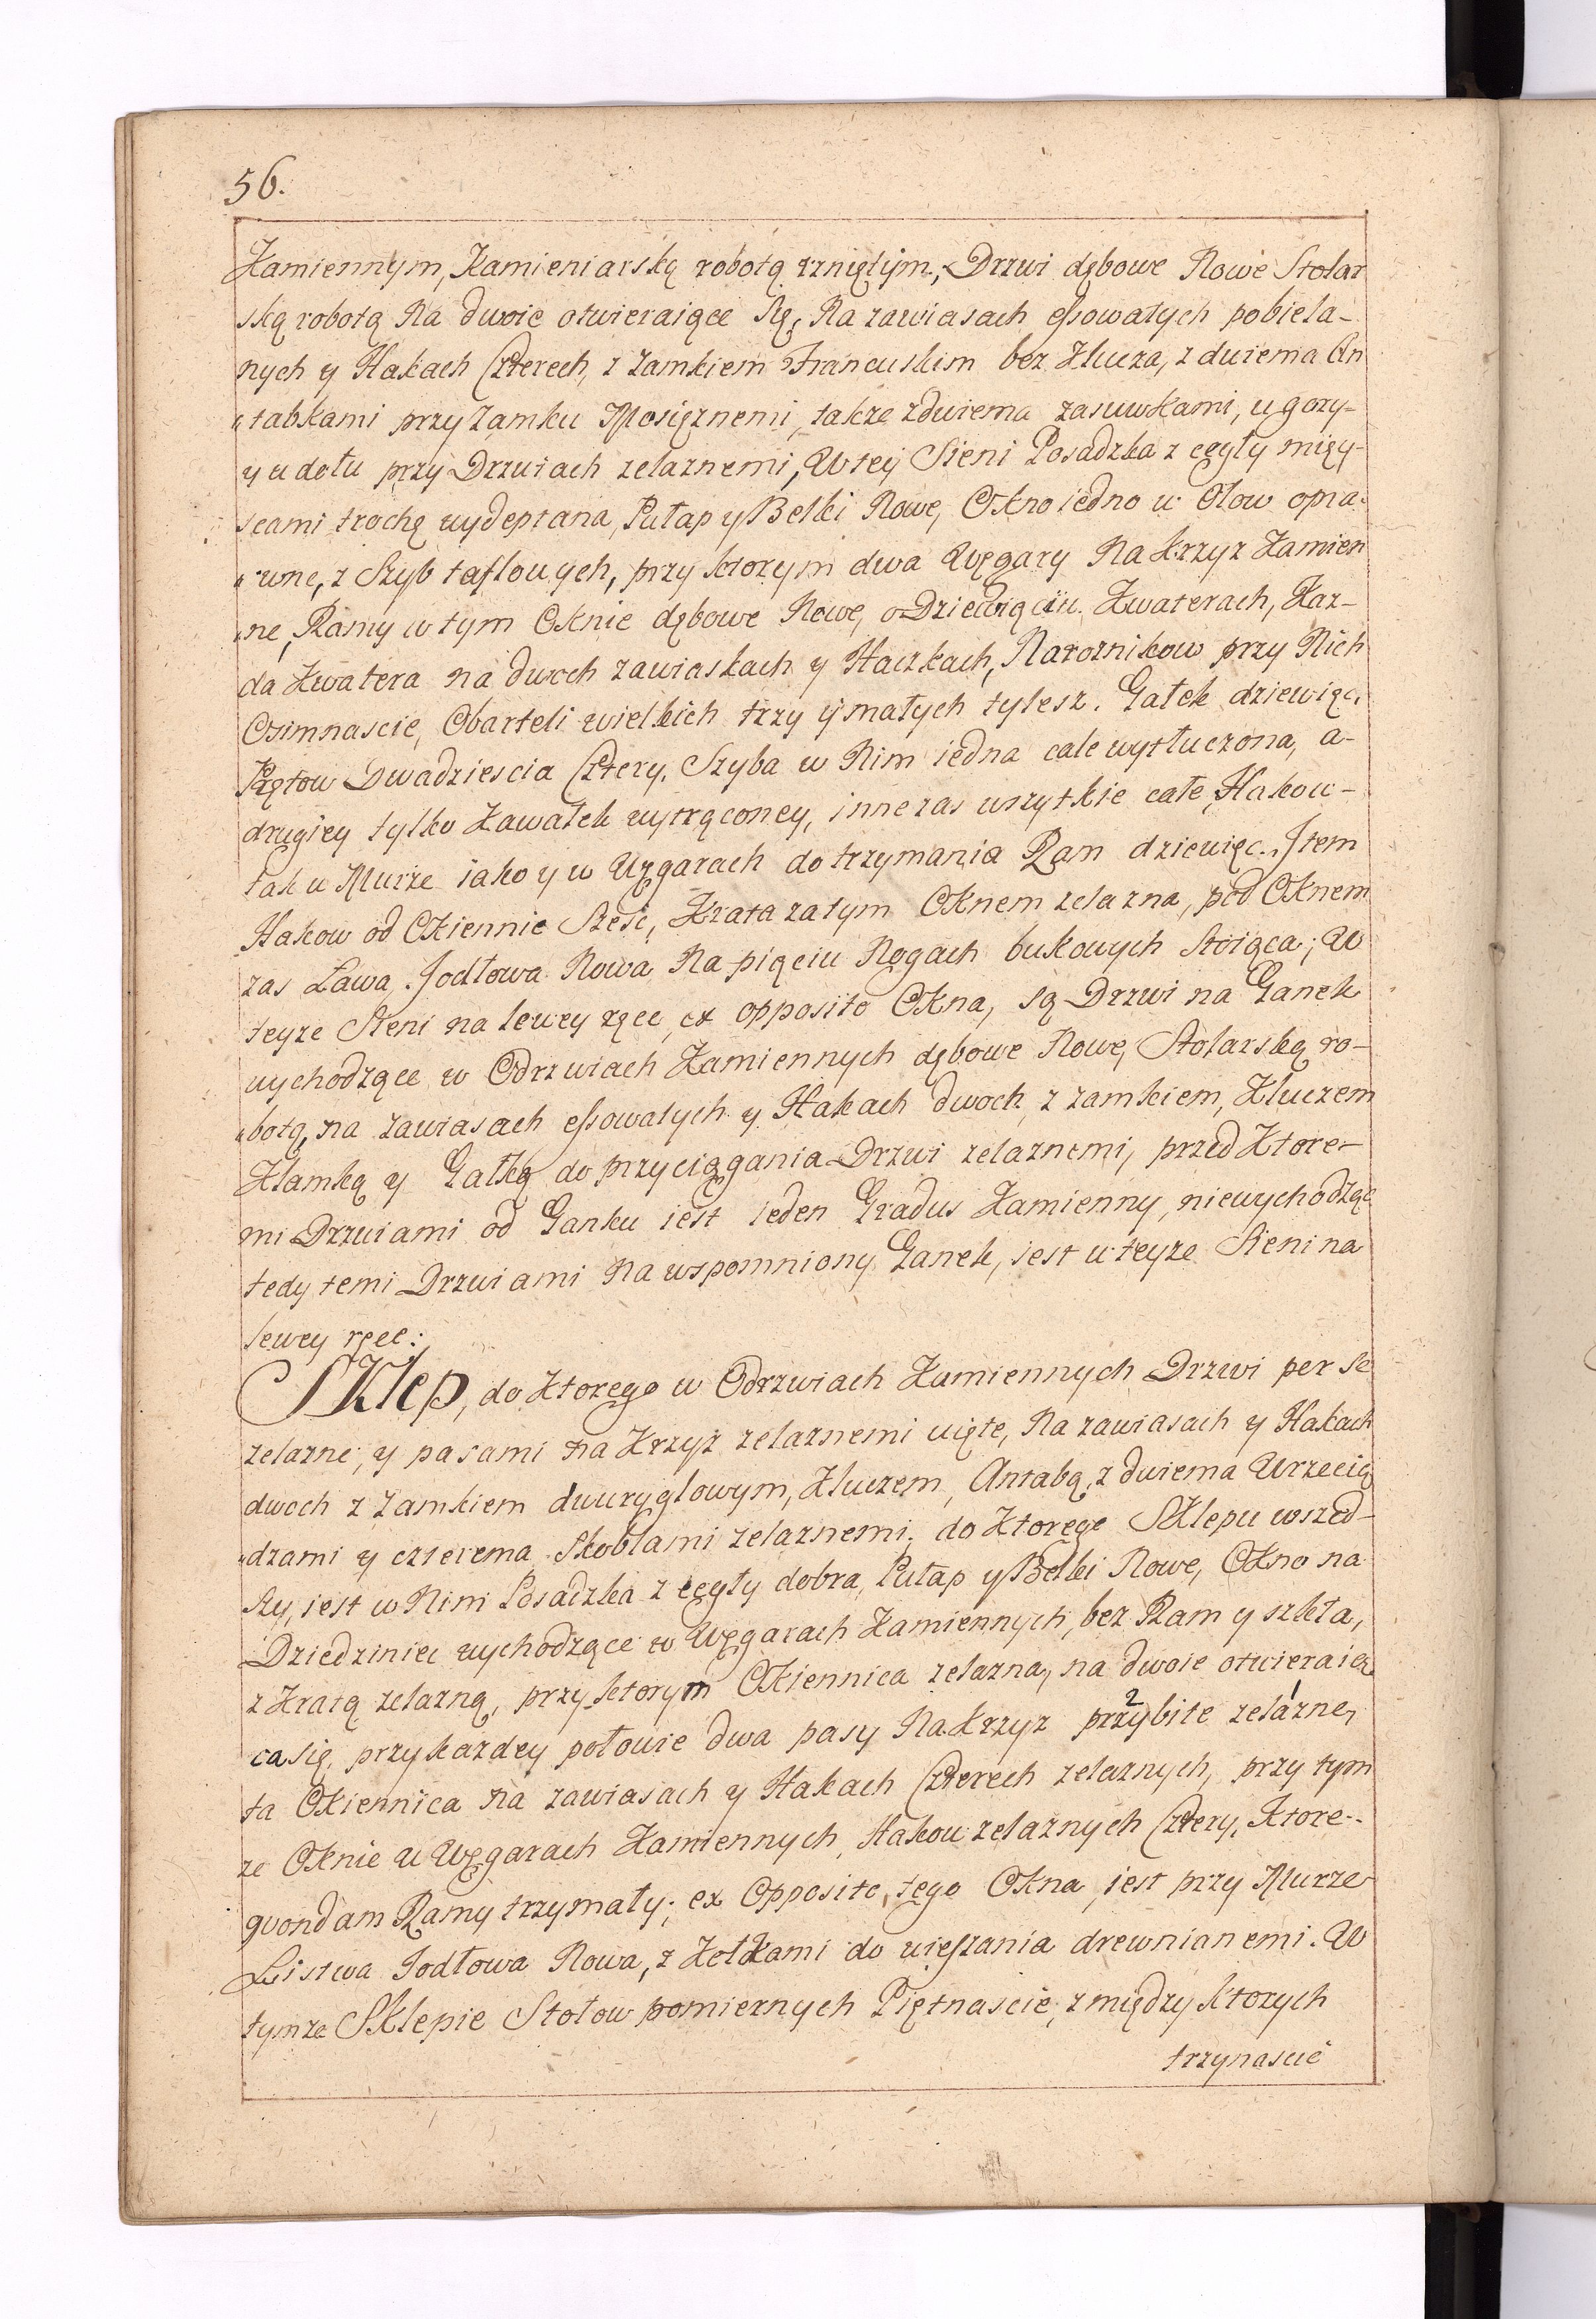 56.
Kamiennym, Kamieniarską robotą rzniętym; Drzwi dębowe Nowe Stolar
ską robotą Na dwoie otwieraiące się, Na zawiasach essowatych pobiela-
nych y Hakach Czterech, z Zamkiem Francuskim bez Klucza, z dwiema An
"tabkami przy Zamku Mosięznemi, takze zdwiema zasuwkami, u gory-
y u dołu przy Drzwiach zelaznemi, W tey Sieni Posadzka z cegły mięy-
scami trochę wydeptana, Pułap y Belki Nowe, Okno iedno w Ołow opra-
"wne, z Szyb taflowych, przy ktorym dwa Węgary Na Krzyz Kamien
"ne, Ramy w tym Oknie dębowe Nowe, o Dziewięciu Kwaterach, Kaz-
da Kwatera na dwoch zawiaskach y Haczkach, Naroznikow przy Nich
Osimnascie, Obarteli wielkich trzy y małych tylesz. Gałek dziewięc,
Prętow Dwadziescia Cztery. Szyba w Nim iedna cale wytłuczona, a-
drugiey tylko Kawałek wytrąconey, inne zas wszytkie całe, Hakow-
tak w Murze iako y w Węgarach do trzymania Ram dziewięc. Item
Hakow od Okiennic Szesc, Krata za tym Oknem zelazna, pod Oknem
zas Ława Jodłowa Nowa Na pięciu Nogach bukowych Stoiąca; W
teyze Sieni na lewey ręce ex opposito Okna, są Drzwi na Ganek
wychodzące w Odrzwiach Kamiennych dębowe Nowe, Stolarską ro-
"botą, na zawiasach essowatych y Hakach dwoch z zamkiem, Kluczem
Klamką y Gałką do przyciągania Drzwi zelaznemi, przed Ktore-
mi Drzwiami od Ganku iest ieden Gradus Kamienny, niewychodząc
tedy temi Drzwiami Na wspomniony Ganek, iest w teyze Sieni na
lewey ręce:
SKlep, do Ktorego w Odrzwiach Kamiennych Drzwi per se
zelazne, y pasami na Krzyż zelaznemi uięte, Na zawiasach y Hakach
dwoch z Zamkiem dwuryglowym, Kluczem, Antabą, z dwiema Wrzecią
"dzami y czterema Skoblami zelaznemi, do Ktorego SKlepu wszed-
szy, iest w Nim Posadzka z cegły dobra, Pułap y Belki Nowe, Okno na
Dziedziniec wychodzące w Węgarach Kamiennych, bez Ram y szkła,
z Kratą zelazną, przy ktorym Okiennica zelazna, na dwoie otwieraią
ca się, przy kazdey połowie dwa pasy Na Krzyz przybite zelazne,
ta Okiennica na zawiasach y Hakach Czterech zelaznych, przy tym
ze Oknie w Węgarach Kamiennych, Hakow zelaznych Cztery, Ktore-
quondam Ramy trzymały; ex Opposito tego Okna, iest przy Murze
Listwa Jodłowa Nowa, z Kołkami do wieszania drewnianemi. W
tymze SKlepie Stołow pomiernych Piętnascie, z między ktorych
trzynascie